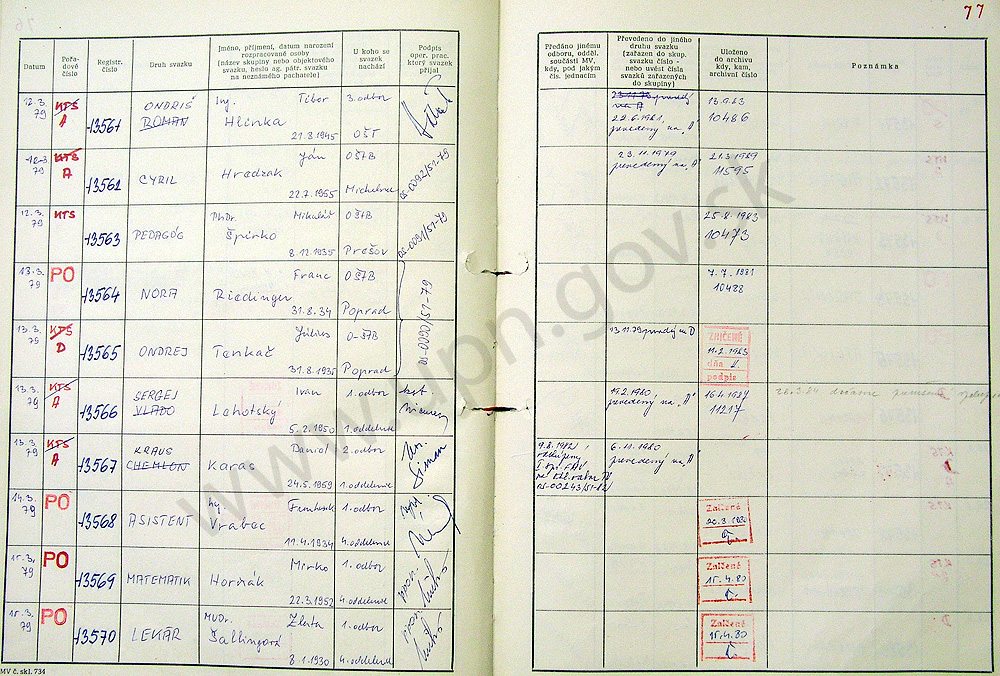 77
Datum
Pořadové číslo
Registr. číslo
Druh svazku
Jméno, příjmení, datum narození rozpracované osoby (název skupiny nebo objektového svazku, heslo ag. pátr. svazku na neznámého pachatele)
U koho se svazek nachází
Podpis oper. prac. který svazek přijal
Předáno jinému odboru, odděl. součásti MV, kdy, pod jakým čís. jednacím
Převedeno do jiného druhu svazku (zařazen do skup. svazku číslo - nebo uvést čísla svazků zařazených do skupiny)
Uloženo do archivu kdy, kam, archivní číslo
Poznámka
12.3. 79 KTS A 13561 ONDRIŠ ROMAN Ing. Tibor Hlinka 21.8.1945 3. odbor OŠT
22.6.1981, prevedený na "A"
10486
12.3. 79 KTS A 13562 CYRIL Ján Hredzak 22.7.1955 OŠtB Michalovce os-0092/51-79
23.11.1979 prevedený na "A"
21.3.1989 11595
12.3. 79 KTS 13563 PEDAGÓG PhDr. Mikuláš Špirko 8.12.1935 OŠtB Prešov os-0091/51-79
25-8-1983 10473
13.3. 79 PO 13564 NORA Franc Riedinger 31.8.34 OŠtB Poprad os-0090/51-79
7.7.1981 10428
13.3. 79 KTS D 13565 ONDREJ Július Tenkač 31.8.1935 O-ŠtB Poprad
ZNIČENÉ 11.2.1983 dňa podpis
13.3. 79 KTS A 13566 SERGEJ VLADO Iván Lehotský 5.2.1950 1. odbor 1. oddelenie
19.2.1980, prevedený na "A"
11217
13.3. 79 KTS A 13567 KRAUS CHEMLON Daniel Karas 24.5.1959 2. odbor 1. oddelenie
6.11.1980 prevedený na "A"
14.3. 79 PO 13568 ASISTENT Ing. František Vrabec 11.4.1934 1. odbor 4. oddelenie
Zničené 20.3.1980
15.3. 79 PO 13569 MATEMATIK Mirko Horňák 22.3.1952 1. odbor 4. oddelenie
Zničené 15.4.80
15.3. 79 PO 13570 LEKÁR MUDr. Zlata Šallingová 8.1.1930 1. odbor 4. oddelenie
Zničené 15.4.80
MV č. skl. 734
www.upn.gov.sk